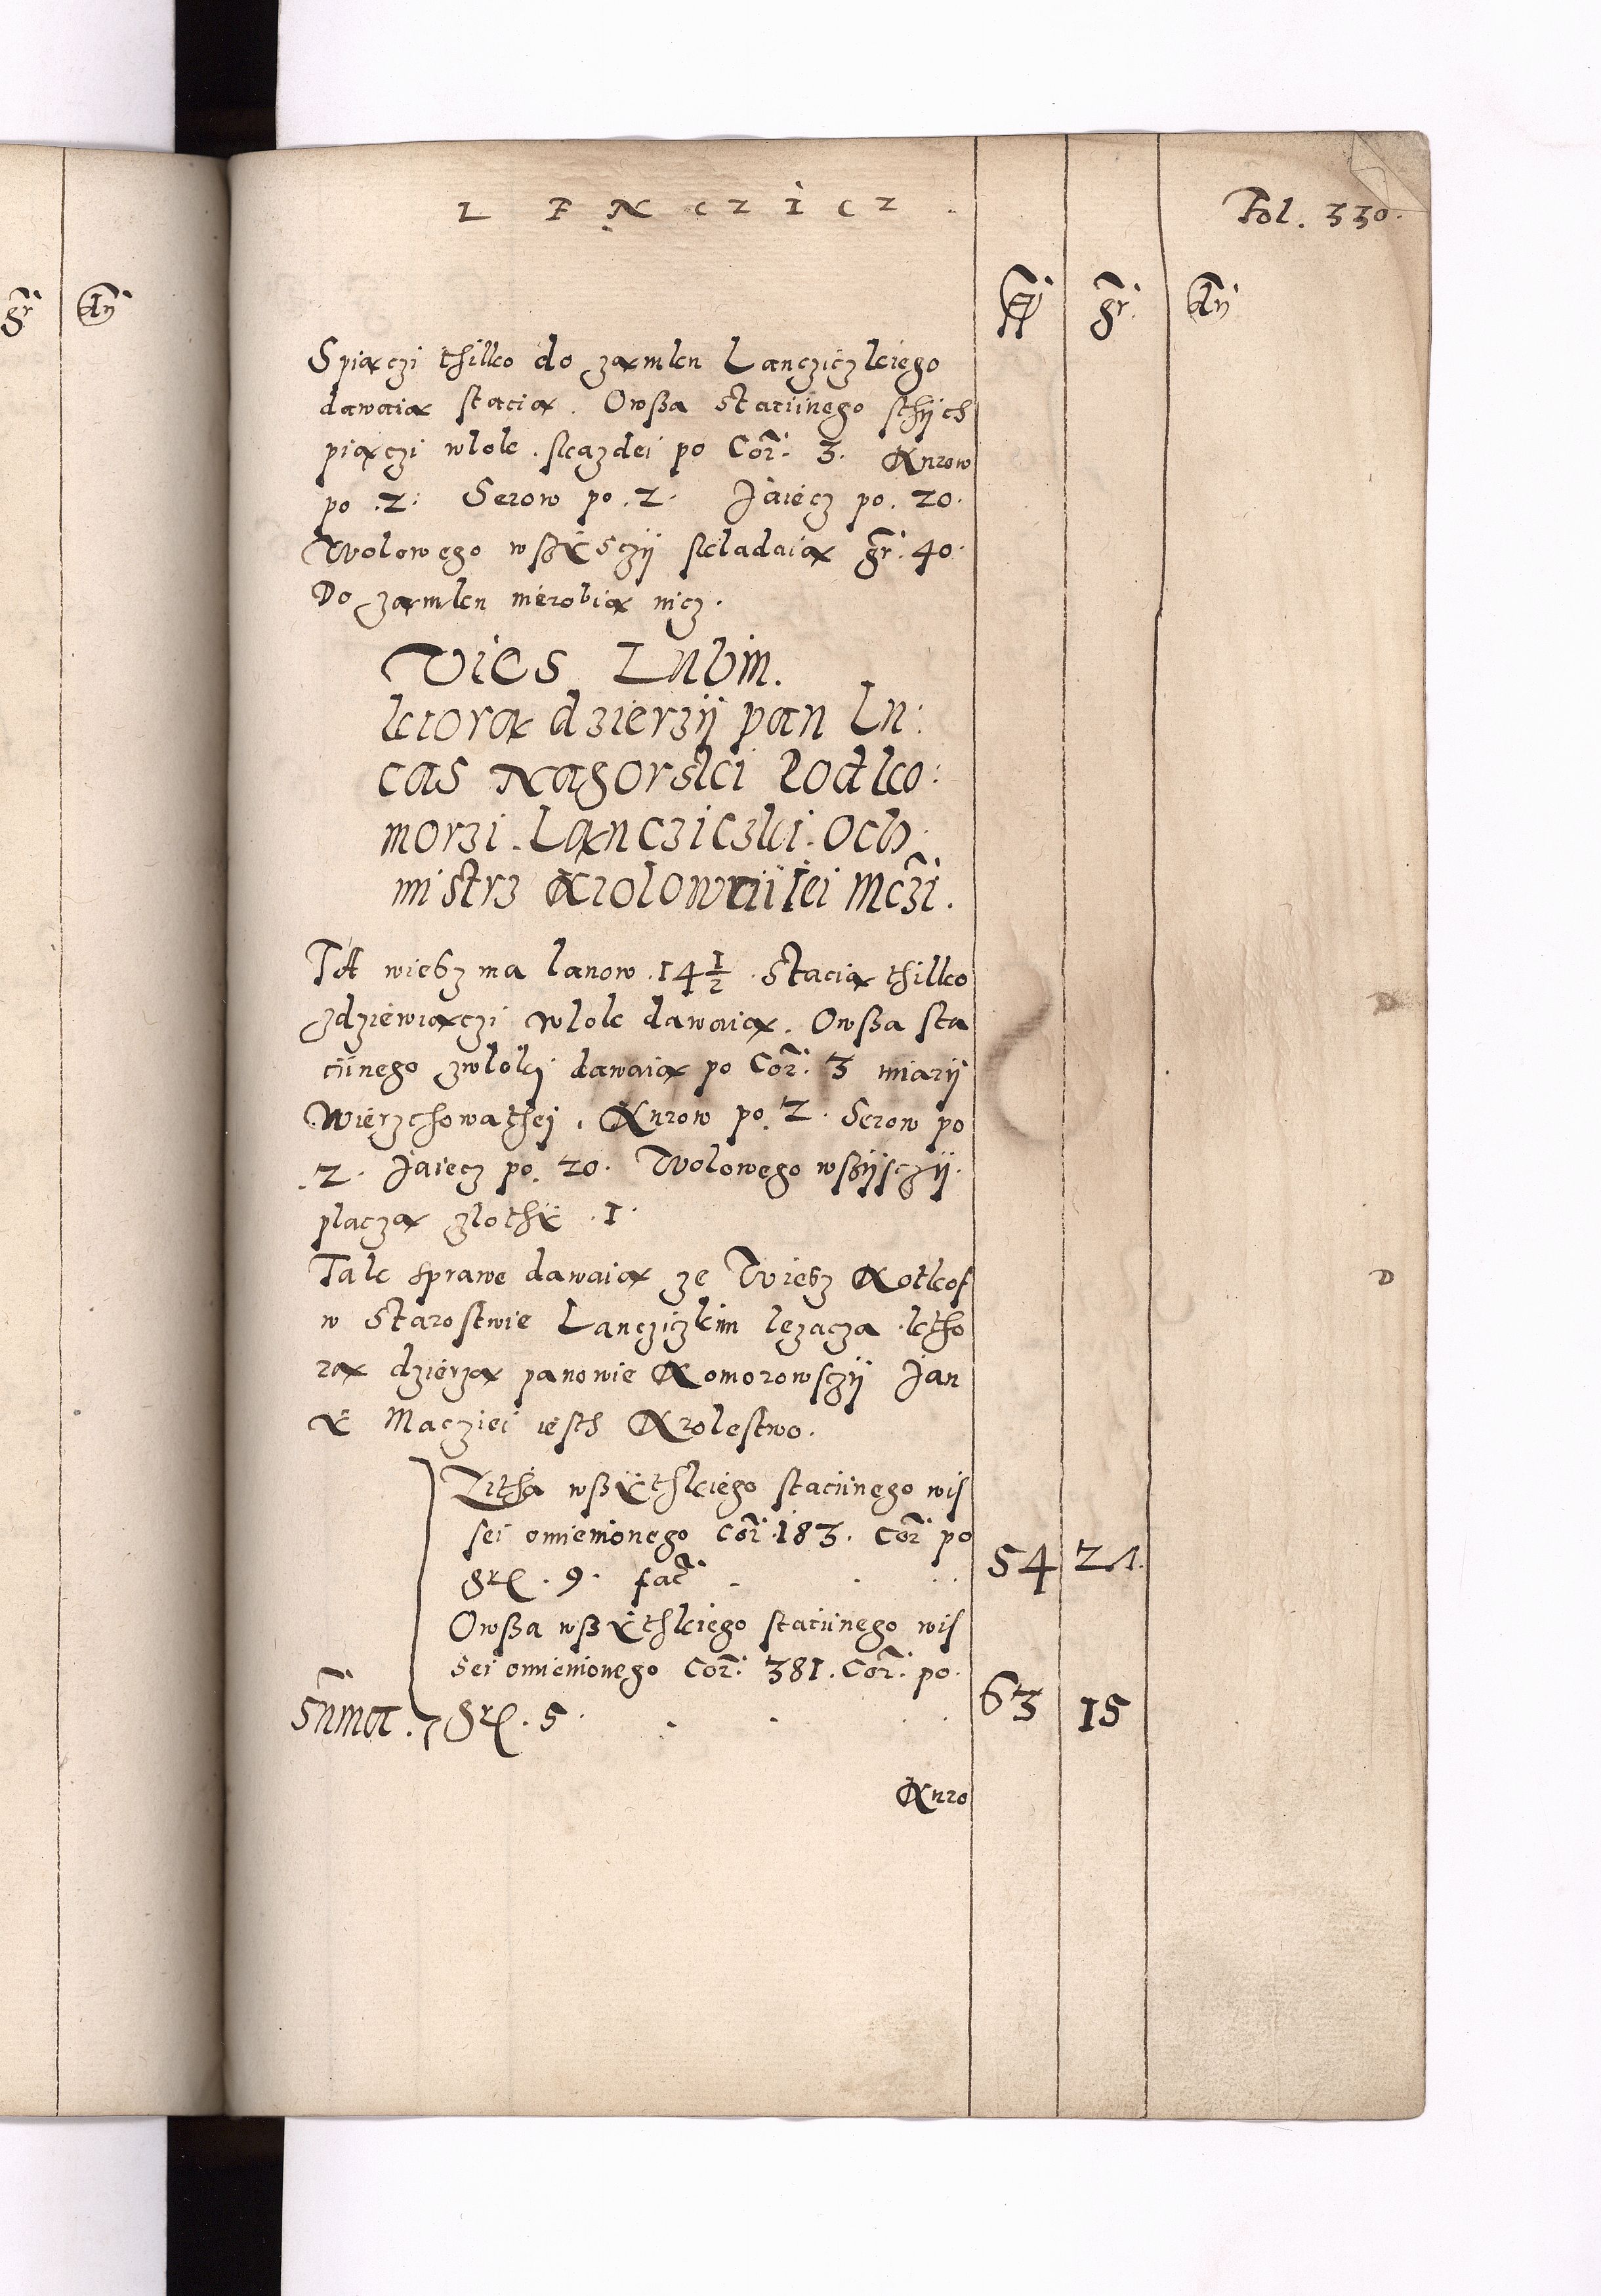 LĘNCZICZ.
Fol. 330.
gr. dn.
fl. gr. dn.
Spiączi thilko do zamku Lancziczkiego
dawaią stacią. Owßa staciinego sthijch
piączi wlok skazdei po Cor. 3. Kurow
po .2. Serow po .2. Jaiecz po. 20.
Wolowego wßÿsczij skladaią gr. 40.
Do zamku nierobią nicz.
Vies Lubin.
ktorą dzierzij pan Lu:
cas Nagorski Podko:
morzi Lanczicski. Och:
mistrz Krolowni iei Mczi.
Ta wiesz ma lanow .14 1/2. Stacią thilko
zdziewiączi wlok dawaią. Owßa sta
ciinego zwloki dawaią po Cor. 3 miarij
Wierzchowathej. Kurow po. 2. Serow po
.2. Jaiecz po. 20. Wolowego wßijsczij.
placzą zlothÿ .1.
Tak sprawe dawaią ze Wiesz Kotkof
w Starostwie Lancziczkim lezacza ktho
rą dzierzą panowie Komorowsczij Jan
ÿ Macziei iesth Krolestwo.
Zitha wßÿthkiego staciinego wis
sei omienionego Cor. 183. Cor. po
gr. 9. fac. 54 21.
Owßa wßÿthkiego staciinego wis
sei omienionego Cor. 381. Cor. po.
Suma. gr. 5. 63 15
Kuro